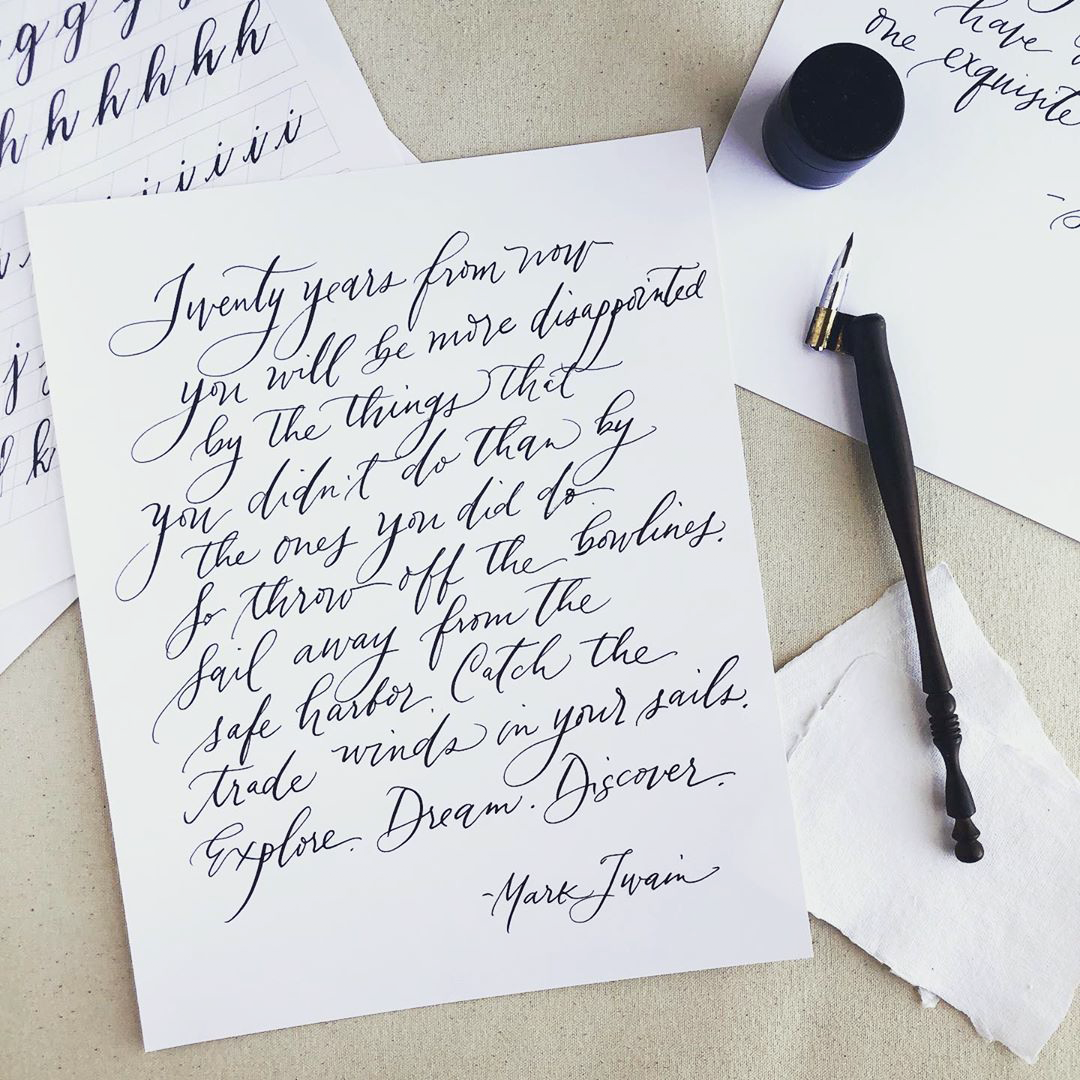 g g g y
h h h h h h
i i i i i
j
k
have
one exquisite
Twenty years from now
you will be more disappointed
by the things that
you didn't do than by
the ones you did do.
So throw off the bowlines.
Sail away from the
safe harbor. Catch the
trade winds in your sails.
Explore. Dream. Discover.
-Mark Twain